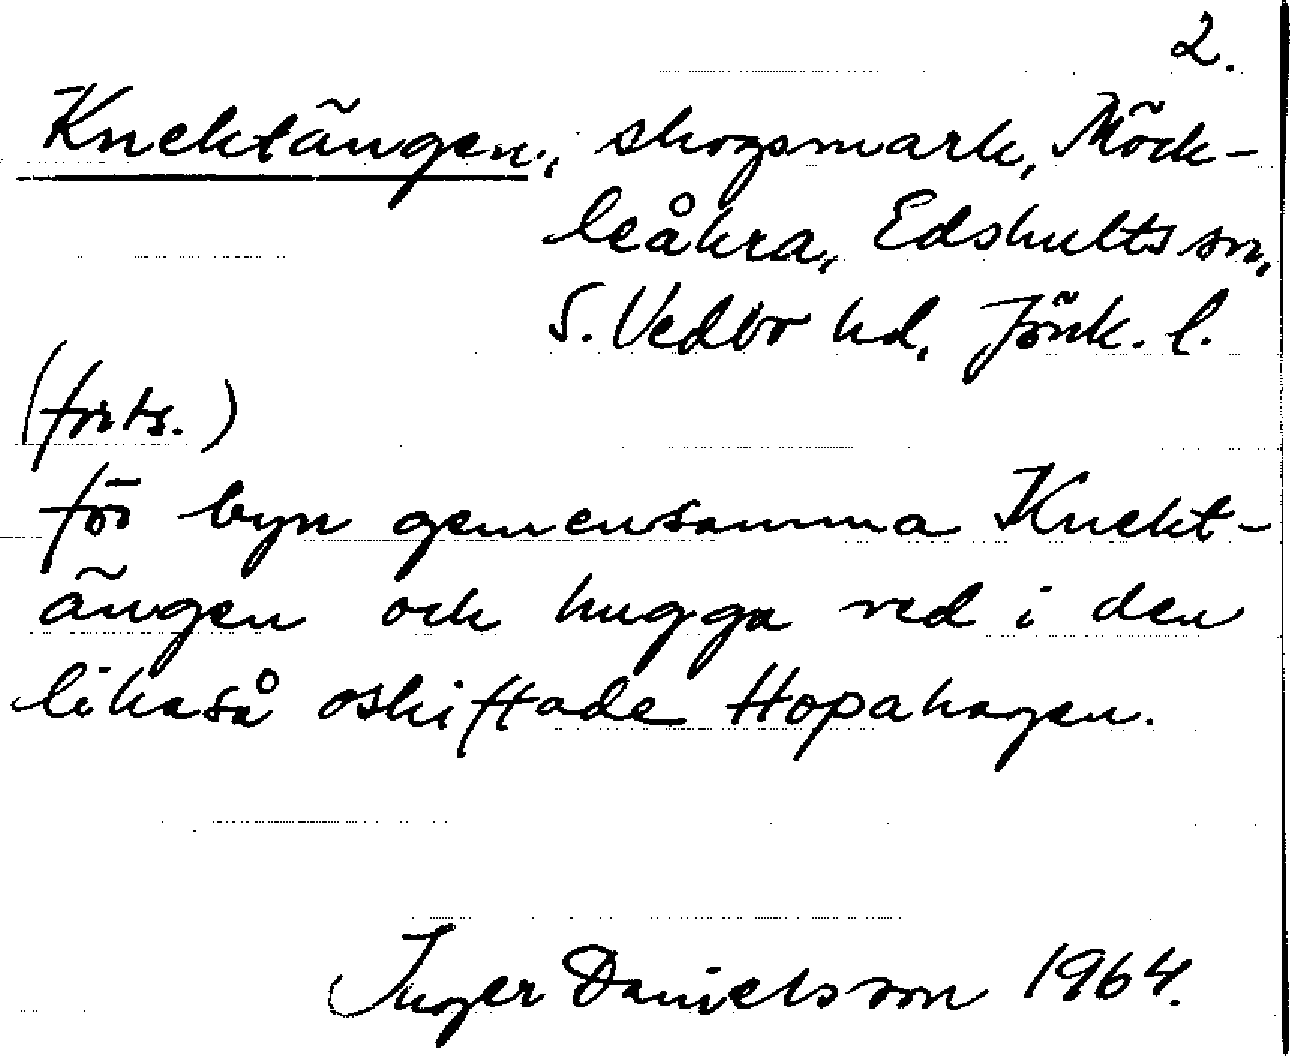 2.
Knektängen, skogsmark, Möck-
leåkra, Edshults sn,
S. Vedbo hd. Jönk. l.
(forts.)
för byn gemensamma Knekt-
ängen och hugga ved i den
likaså oskiftade Hopahagen.
Inger Danielsson 1964.